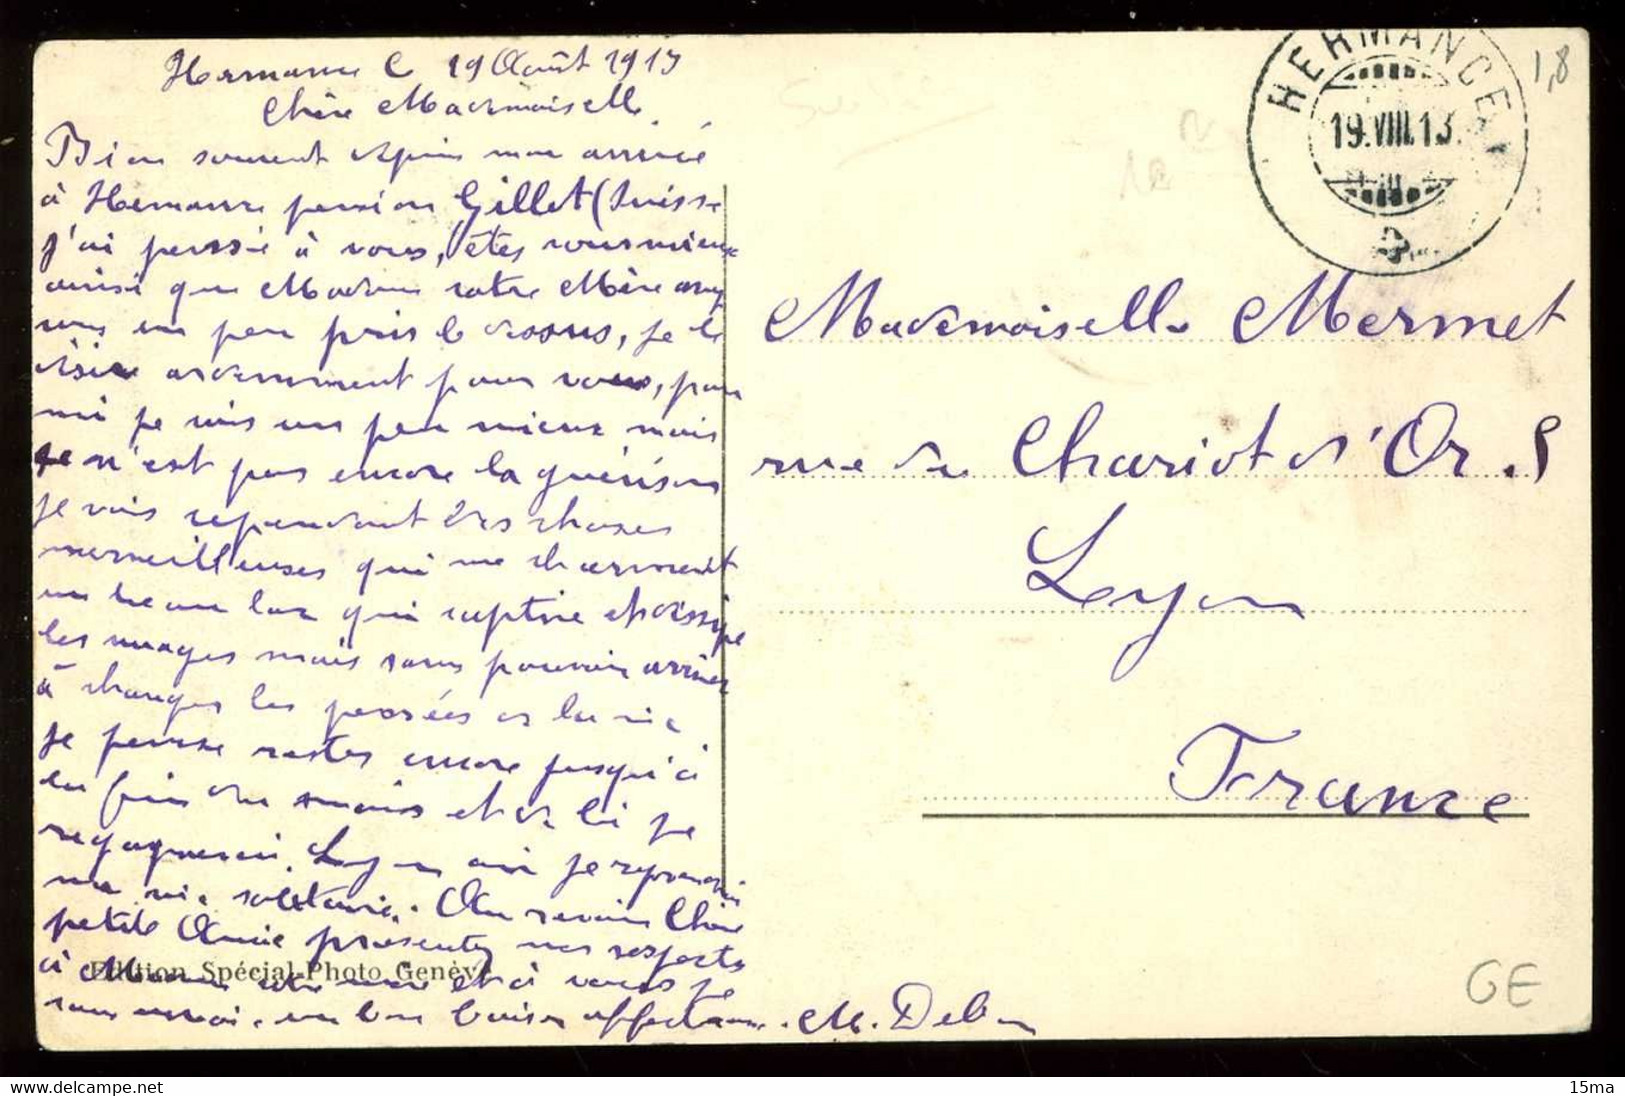 Hermance le 19 Août 1913
Chère Mademoiselle
Bien souvent depuis mon arrivée
à Hermance pension Gillet (Suisse
j'ai pensé à vous, êtes vous mieux
ainsi que Madame votre Mère avez
vous un peu pris le dessus, je le
désire ardemment pour vous, pour
moi je vais un peu mieux mais
ce n'est pas encore la guérison
je vois cependant des choses
merveilleuses qui me charment
un beau lac qui captive
les nuages mais sans pouvoir arriver
à changer les pensées de la vie
je pense rester encore jusqu'à
la fin du mois et de là je
regagnerai Lyon où je reprendrai
ma vie solitaire. Au revoir Chère
petite Amie présentez mes respects
à Madame votre mère et à vous je
vous envoie un bon baiser affectueux. M. Debon
Edition Spécial-Photo Genève
HERMANCE
19.VIII.13.
1,8
Mademoiselle Mermet
rue du Chariot d'Or. 5
Lyon
France
GE
www.delcampe.net
15ma